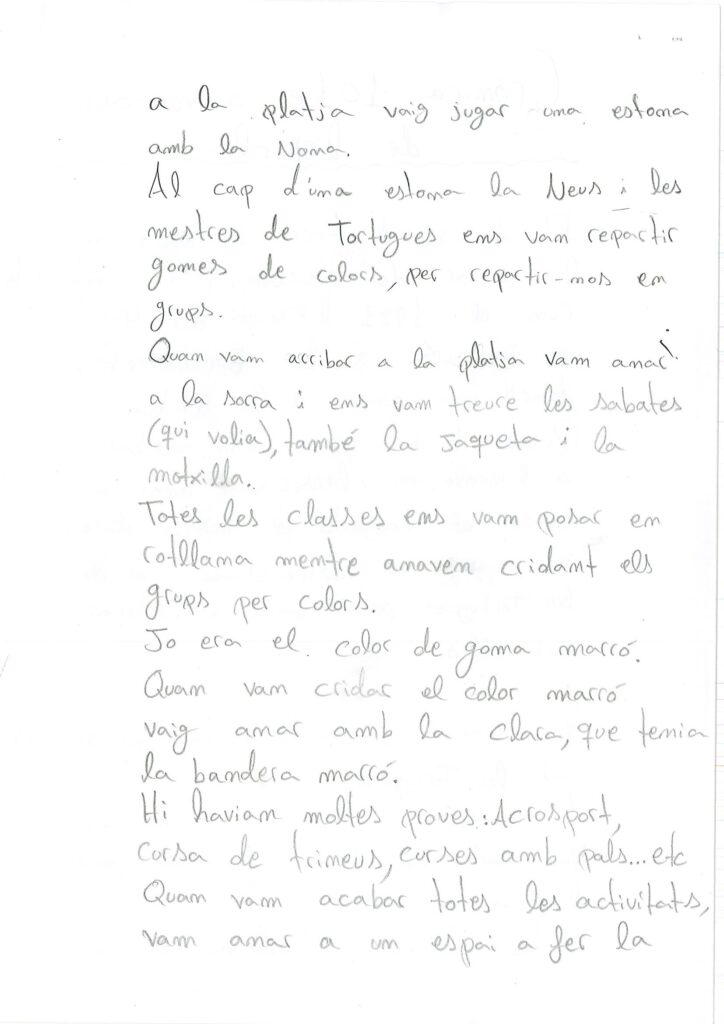 a la platja vaig jugar una estona
amb la Nona.
Al cap d'una estona la Neus i les
mestres de Tortugues ens van repartir
gomes de colors, per repartir-nos en
grups.
Quan vam arribar a la platja vam anar
a la sorra i ens vam treure les sabates
(qui volia), també la jaqueta i la
motxilla.
Totes les classes ens vam posar en
rotllana mentre anaven cridant els
grups per colors.
Jo era el color de goma marró.
Quan van cridar el color marró
vaig anar amb la Clara, que tenia
la bandera marró.
Hi havian moltes proves: Acrosport,
cursa de trineus, curses amb pals...etc
Quan vam acabar totes les activitats,
vam anar a un espai a fer la